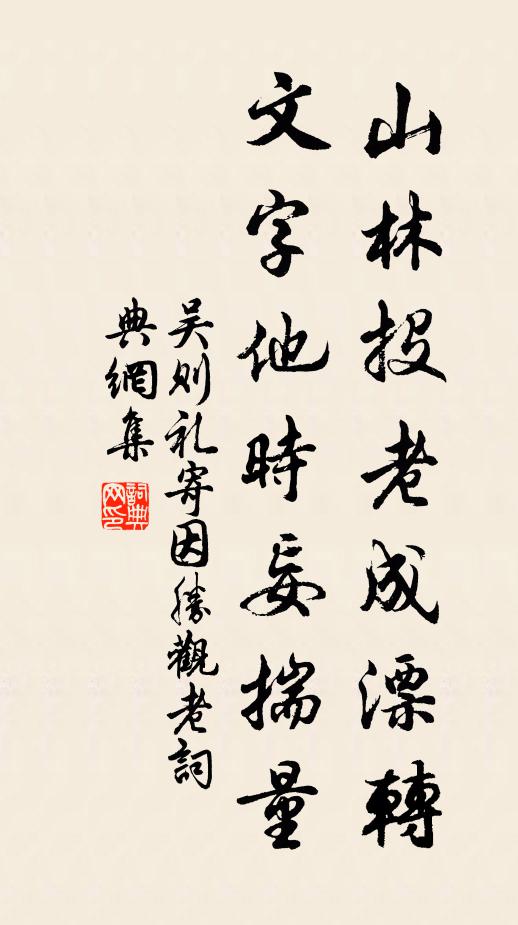 山林投老成漂轉
文字他時妄揣量
吴则礼寄因勝觀老詞
典網集
詞典网印